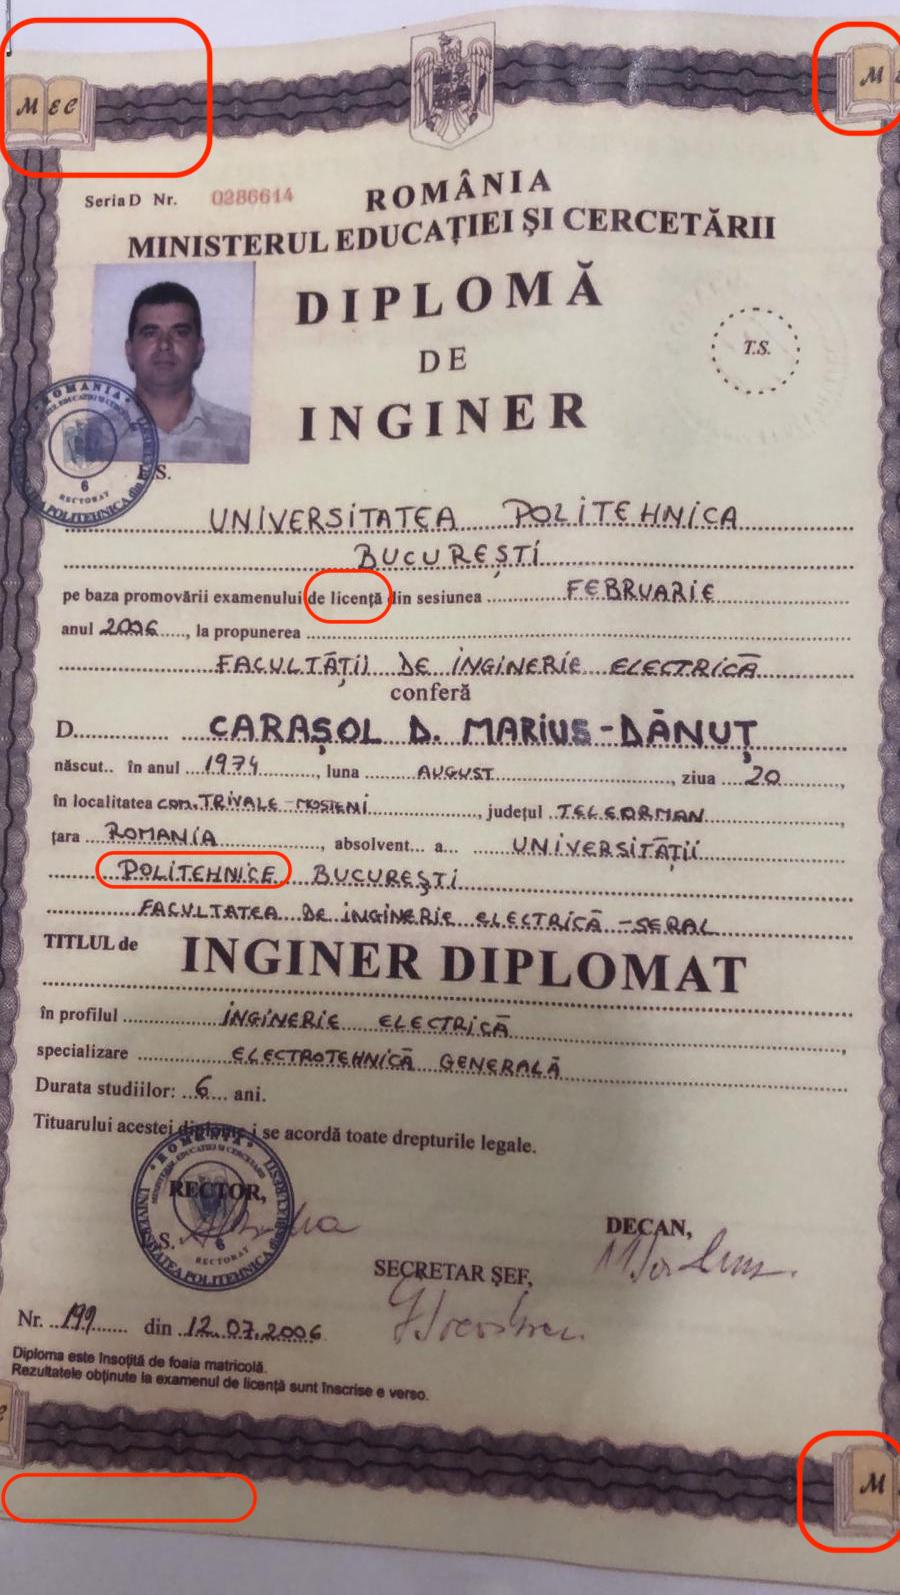 M EC
M
Seria D Nr. 0286614
ROMÂNIA
MINISTERUL EDUCAȚIEI ȘI CERCETĂRII
DIPLOMĂ
DE
INGINER
T.S.
ROMANIA
6
RECTORAT
UNIVERSITATEA POLITEHNICA
BUCUREȘTI
pe baza promovării examenului de licență din sesiunea FEBRUARIE
anul 2006, la propunerea
FACULTĂȚII DE INGINERIE ELECTRICĂ
conferă
D. CARAȘOL D. MARIUS-DĂNUȚ
născut.. în anul 1974, luna AUGUST, ziua 20
în localitatea COM. TRIVALE-MOSTENI, județul TELEORMAN,
țara ROMANIA, absolvent... a... UNIVERSITĂȚII
POLITEHNICE BUCUREȘTI
FACULTATEA DE INGINERIE ELECTRICĂ - SERAL
TITLUL de INGINER DIPLOMAT
în profilul INGINERIE ELECTRICĂ,
specializare ELECTROTEHNICĂ GENERALĂ
Durata studiilor: 6 ani.
Tituarului acestei i se acordă toate drepturile legale.
ROMANIA
RECTOR,
6
RECTORAT
UNIVERSITATEA POLITEHNICA din BUCUREȘTI
DECAN,
SECRETAR ȘEF,
Nr. 199 din 12.07.2006
Diploma este însoțită de foaia matricolă.
Rezultatele obținute la examenul de licență sunt înscrise e verso.
M